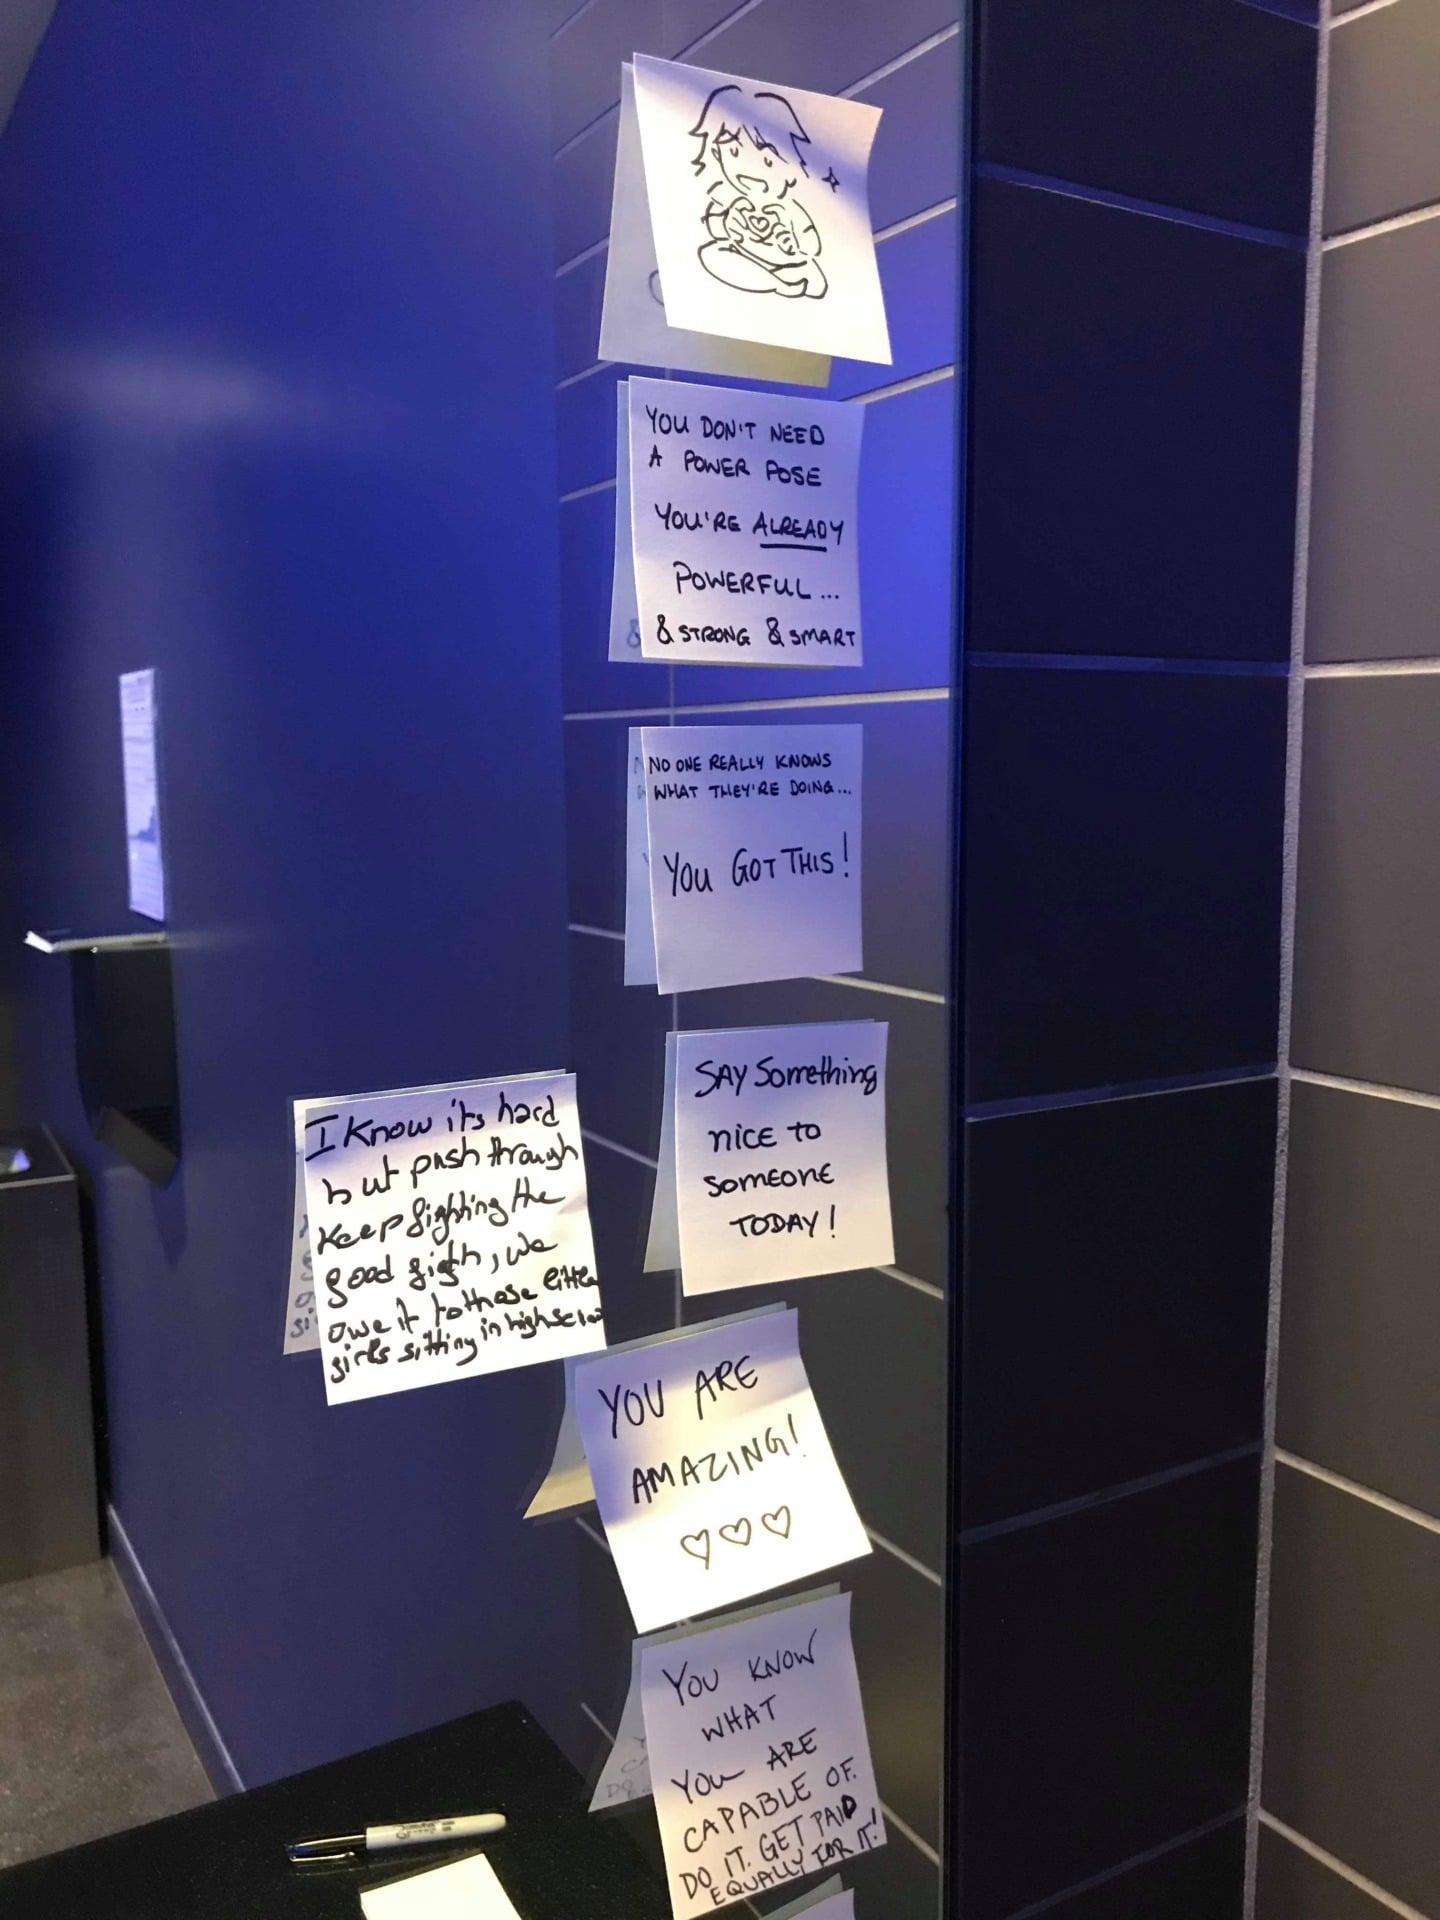 YOU DON'T NEED
A POWER POSE
YOU'RE ALREADY
POWERFUL...
& STRONG & SMART
NO ONE REALLY KNOWS
WHAT THEY'RE DOING...
YOU GOT THIS!
SAY Something
nice to
someone
TODAY!
I Know its hard
but push through
Keep fighting the
good figth, we
owe it to those little
girls sitting in high
YOU ARE
AMAZING!
YOU KNOW
WHAT
YOU ARE
CAPABLE OF.
DO IT. GET PAID
EQUALLY FOR IT!